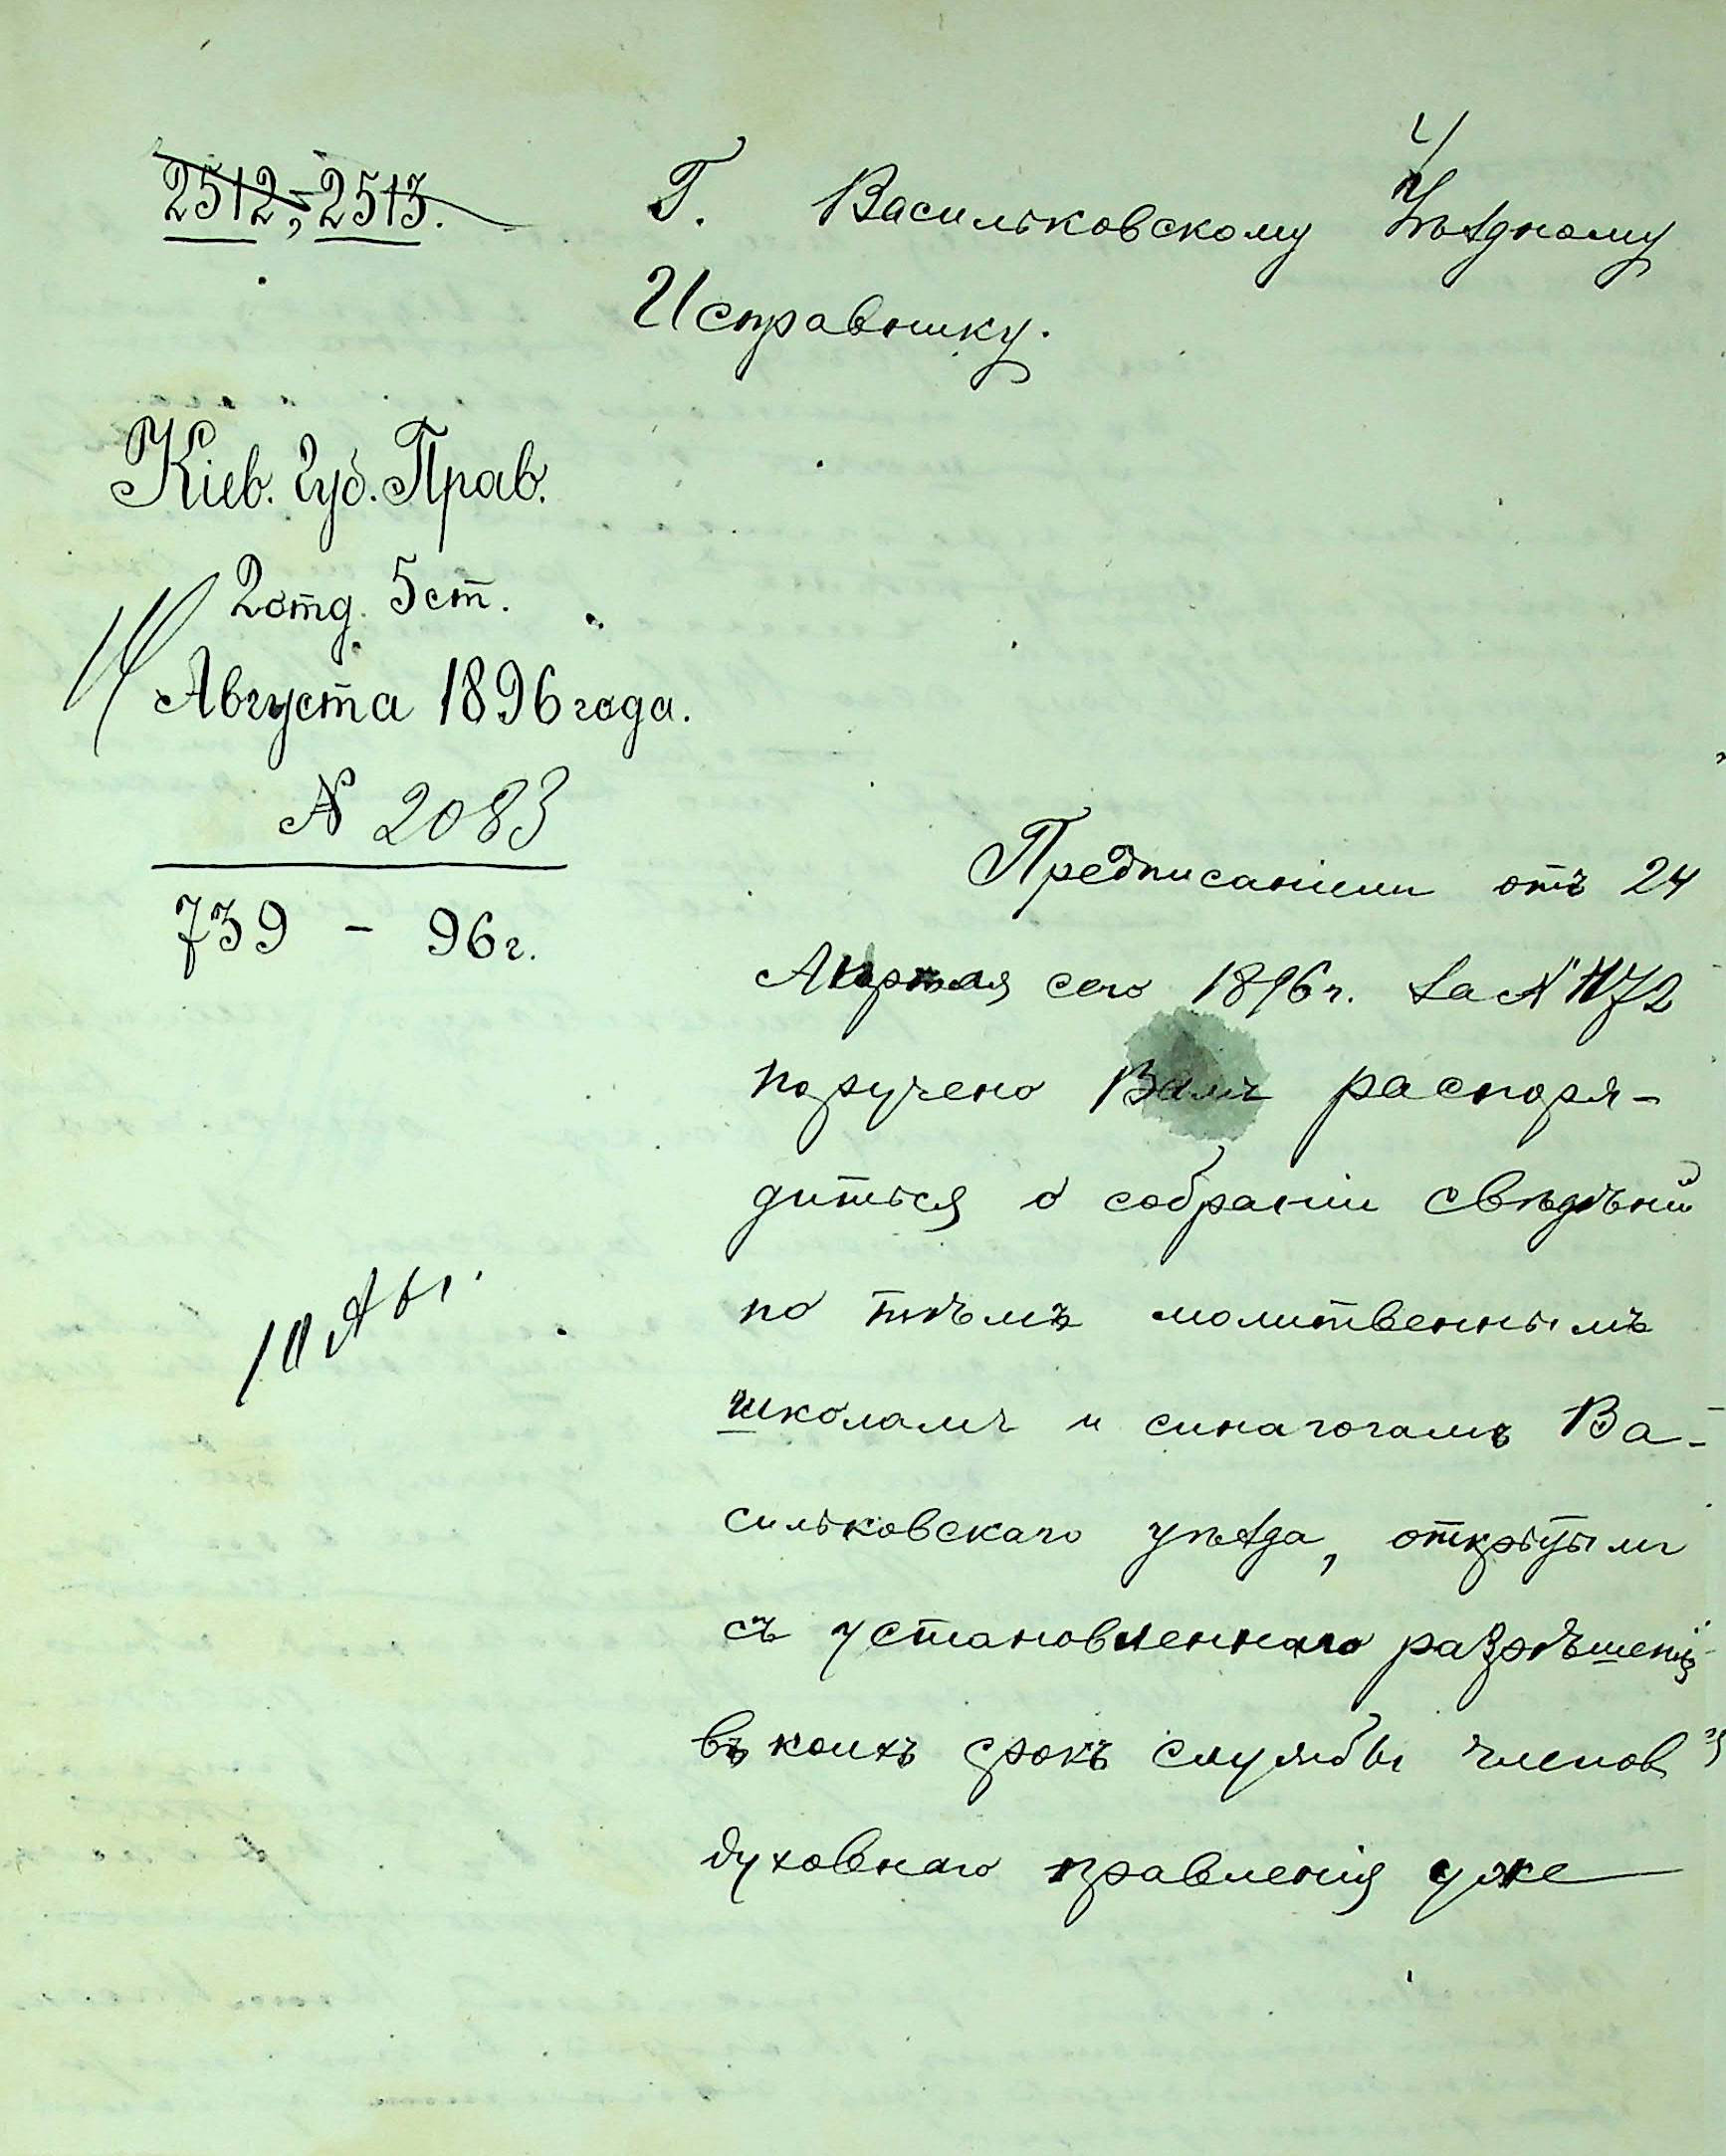 2512, 2513.
Г. Васильковскому Уѣздному
Исправнику.
Кіев. Губ. Прав.
2 отд. 5 ст.
Августа 1896 года.
№ 2083
739 - 96 г.
Предписаніемъ отъ 24
Апрѣля сего 1896 г. за № 1172
поручено Вамъ распоря-
диться о собраніи свѣдѣній
по тѣмъ молитвеннымъ
школамъ и синагогамъ Ва-
сильковскаго уѣзда, открытымъ
съ установленнаго разрѣшенія
въ коихъ срокъ службы членовъ
духовнаго правленія уже